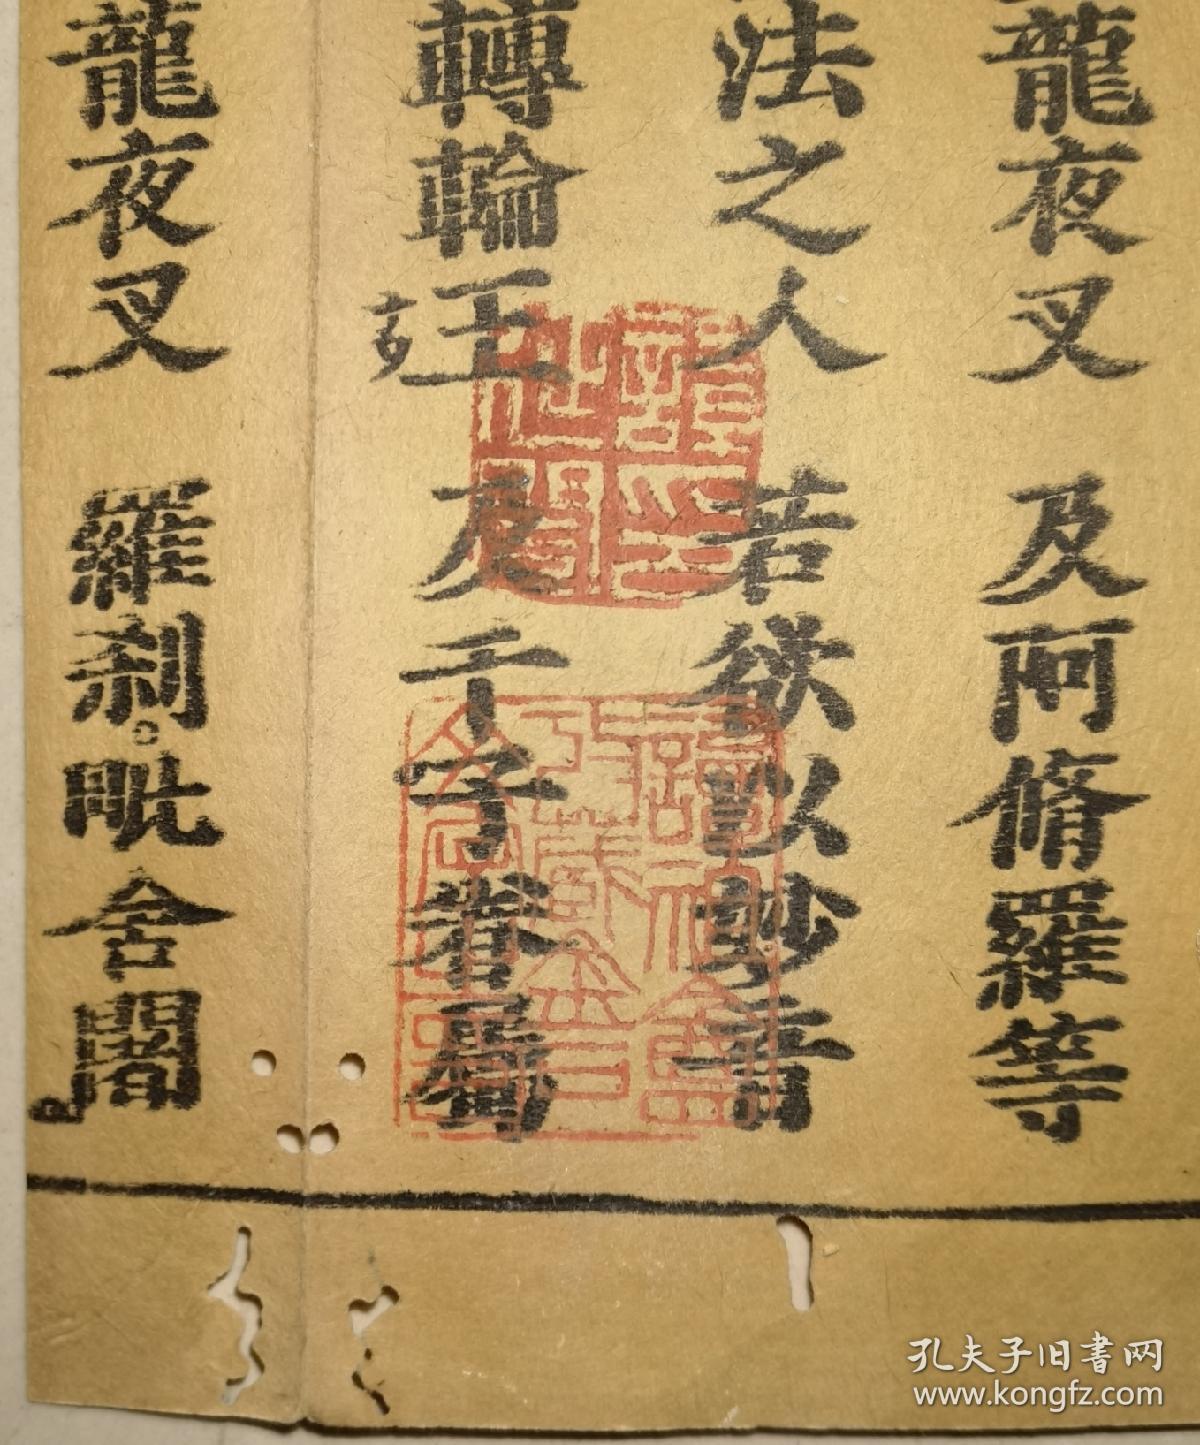 龍夜叉 及阿脩羅等
法之人 若欲以妙音
轉輪王 及千子眷屬
龍夜叉 羅刹毗舍闍
孔夫子旧書网
www.kongfz.com